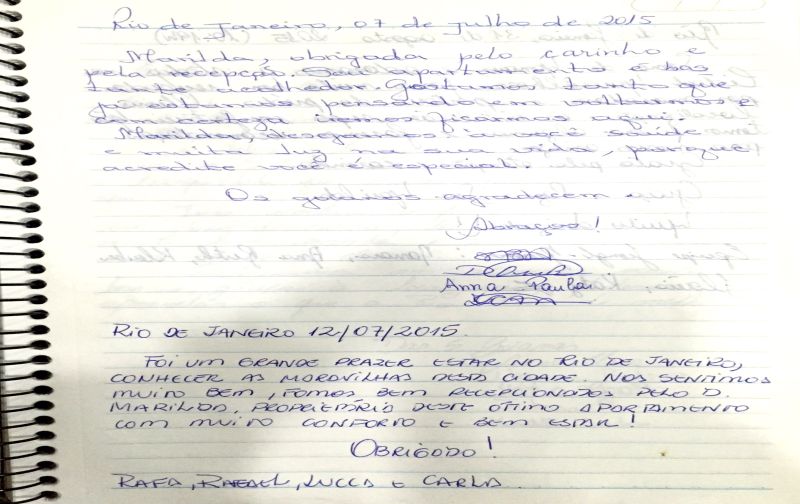 Rio de Janeiro, 07 de julho de 2015
Marilda, obrigada pelo carinho e
pela recepção. Seu apartamento é bas
tante acolhedor. Gostamos tanto que
já estamos pensando em voltarmos e
com certeza iremos ficarmos aqui.
Marilda, desejamos a você saúde
e muita luz na sua vida, porque
acredite você é especial.
Os goianos agradecem
Abraços!
Anna Paula
RIO DE JANEIRO 12/07/2015.
FOI UM GRANDE PRAZER ESTAR NO RIO DE JANEIRO,
CONHECER AS MARAVILHAS DESTA CIDADE. NOS SENTIMOS
MUITO BEM, FOMOS BEM RECEPCIONADOS PELO D.
MARILDA, PROPRIETÁRIA DESTE ÓTIMO APARTAMENTO
COM MUITO CONFORTO E BEM ESTAR!
OBRIGADO!
RAFA, RAFAEL, LUCCA E CARLA.